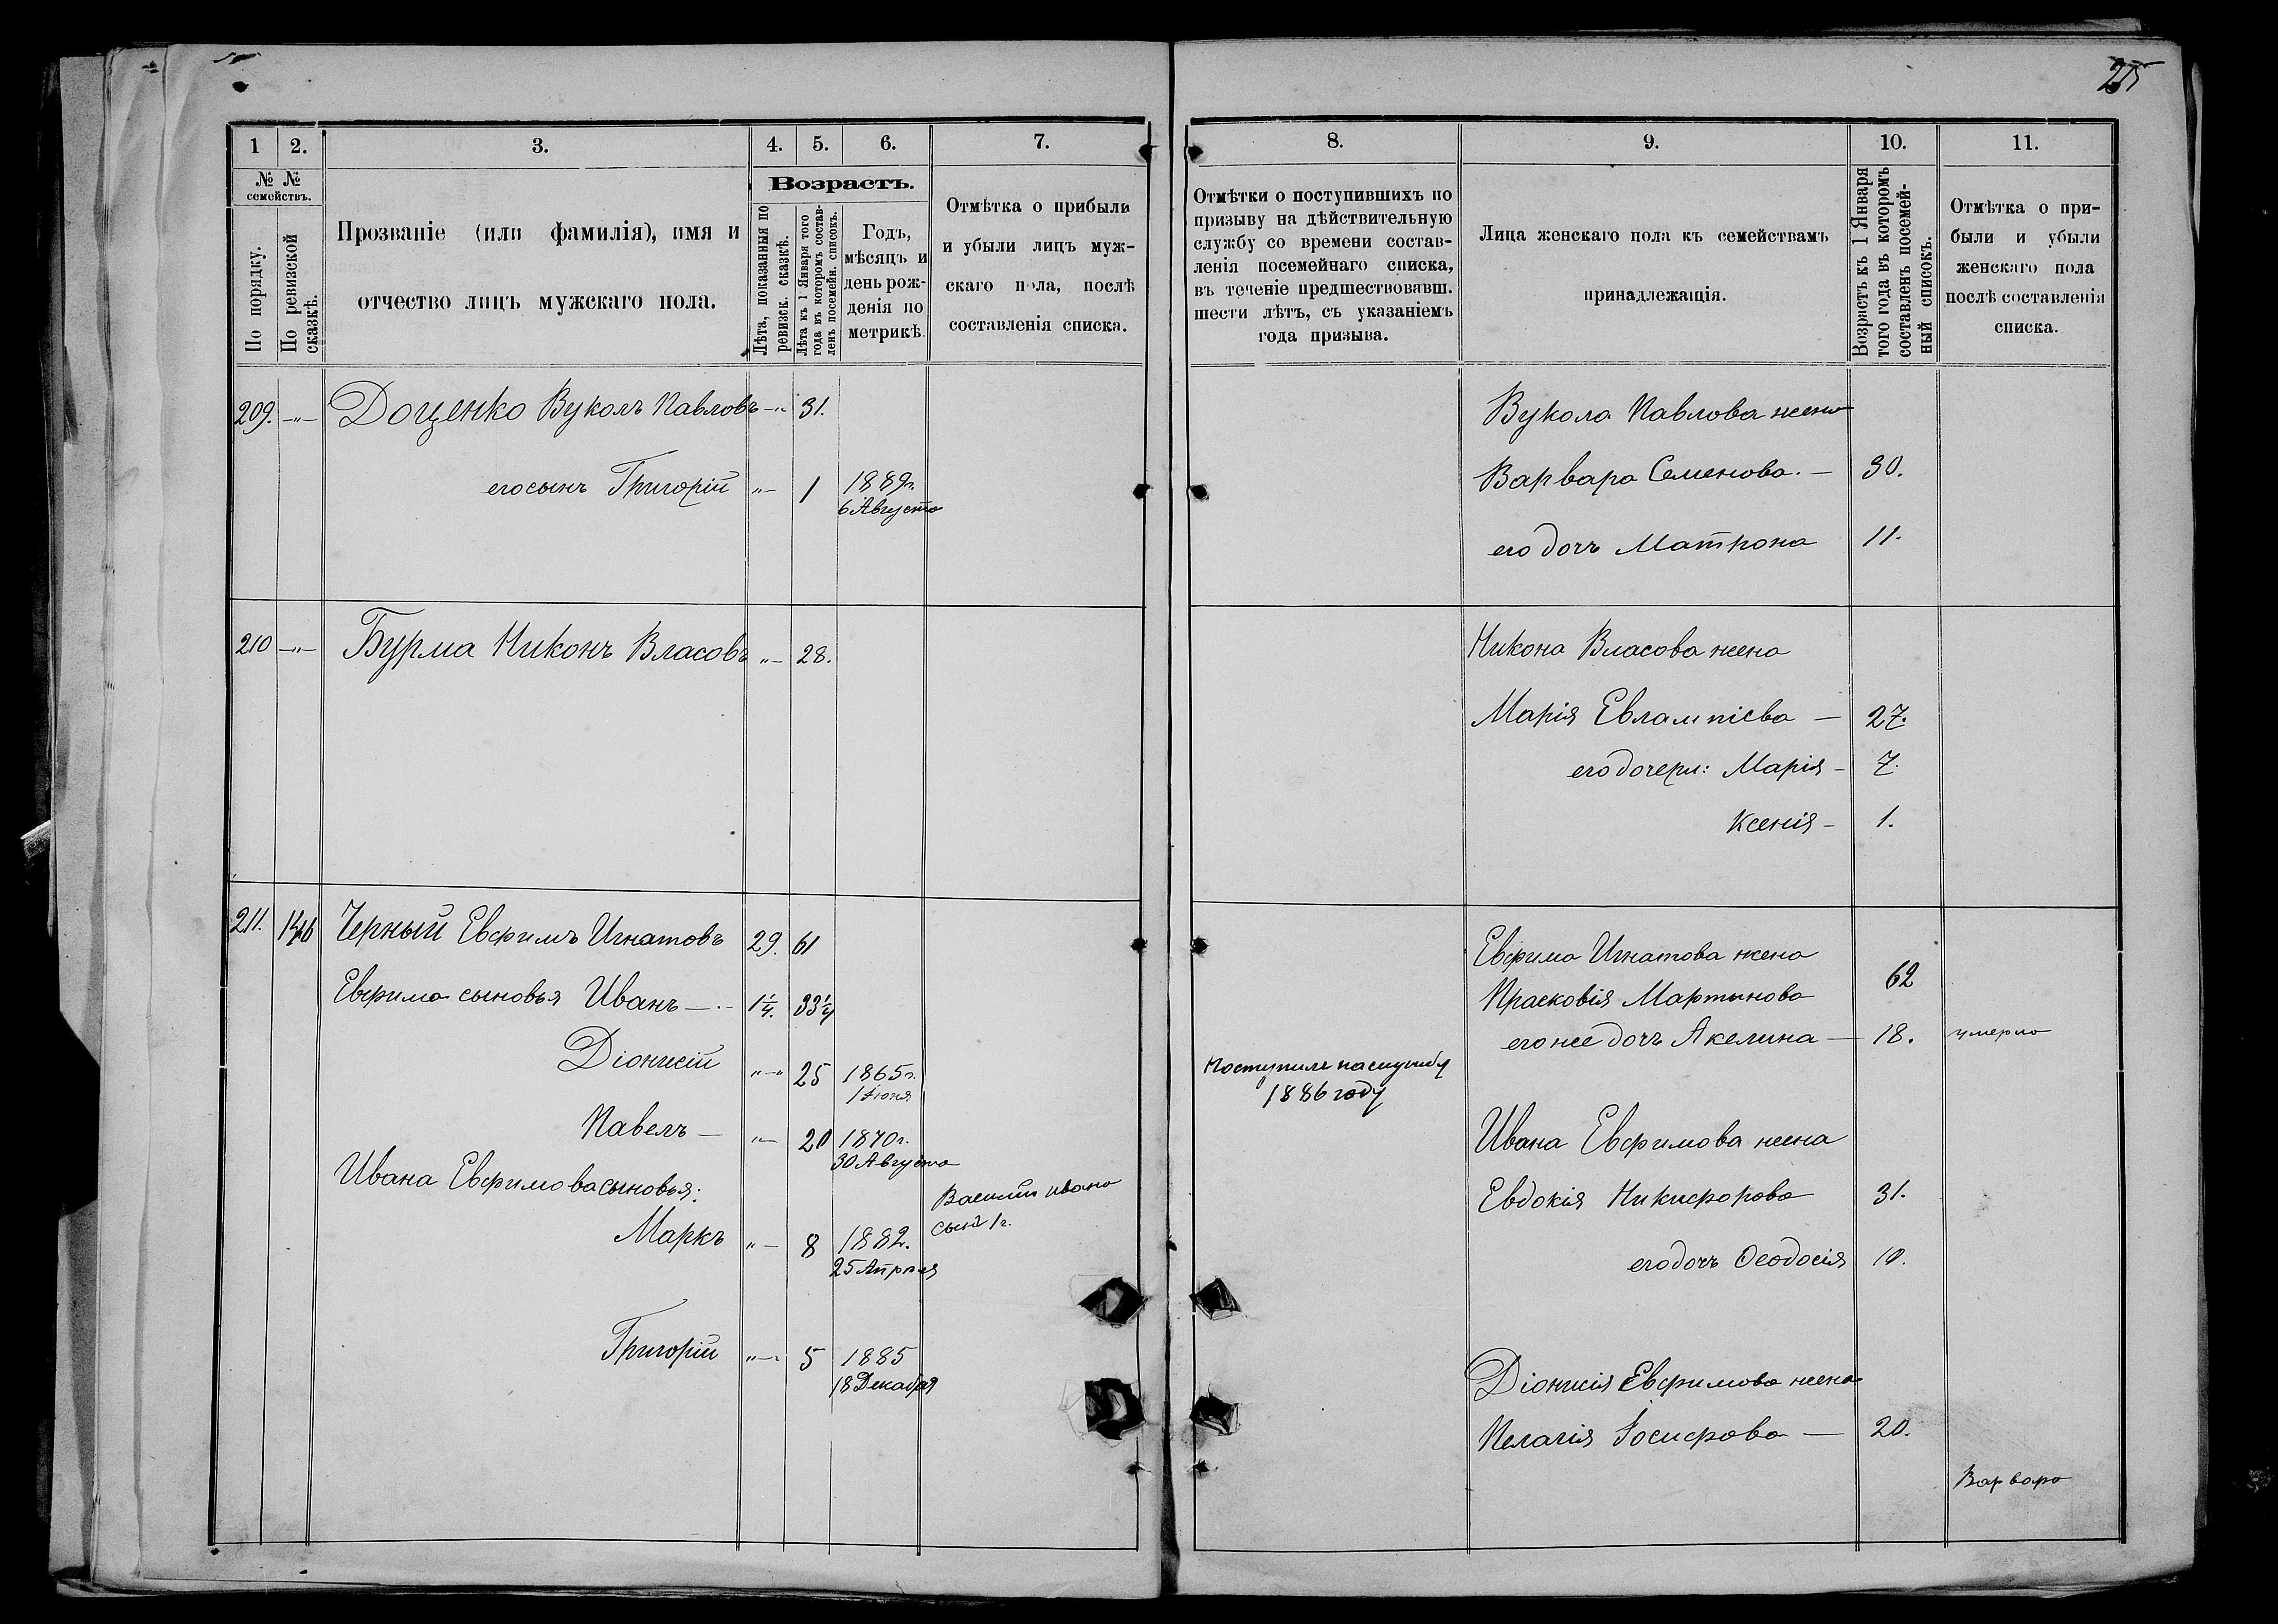 215
1
2.
3.
4.
5.
6.
7.
№ №
семействъ.
По порядку.
По ревизской
сказкѣ.
Прозваніе (или фамилія), имя и
отчество лицъ мужскаго пола.
Возрастъ.
Лѣта, показанныя по
ревизск. сказкѣ.
Лѣта къ 1 Января того
года въ которомъ состав-
ленъ посемейн. списокъ.
Годъ,
мѣсяцъ и
день рож-
денія по
метрикѣ.
Отмѣтка о прибыли
и убыли лицъ муж-
скаго пола, послѣ
составленія списка.
209. —„— Доценко Вуколъ Павловъ —„ 31.
его сынъ Григорій „— 1 1889г.
6 Августа
210 —„— Бурма Никонъ Власовъ „— 28.
211. 146 Черный Евфимъ Игнатовъ 29. 61
Евфима сыновья Иванъ — 1¼. 33¼
Діонисій „—„ 25 1865г.
1 Іюня
Павелъ — „— 20 1870г.
30 Августа
Ивана Евфимова сыновья:
Василій Ивана
сынъ 1г.
Маркъ „— 8 1882.
25 Апреля
Григорій „—„ 5 1885
18 Декабря
8.
9.
10.
11.
Отмѣтки о поступившихъ по
призыву на дѣйствительную
службу со времени состав-
ленія посемейнаго списка,
въ теченіе предшествовавш.
шести лѣтъ, съ указаніемъ
года призыва.
Лица женскаго пола къ семействамъ
принадлежащія.
Возрастъ къ 1 Января
того года въ которомъ
составленъ посемей-
ный списокъ.
Отмѣтка о при-
были и убыли
женскаго пола
послѣ составленія
списка.
Вукола Павлова жена
Варвара Семенова. — 30.
его дочь Матрона 11.
Никона Власова жена
Марія Евлампіева — 27.
его дочери: Марія — 7.
Ксенія — 1.
Евфима Игнатова жена
Прасковія Мартынова 62
его же дочь Акелина — 18. умерла
Поступилъ на службу
1886 году
Ивана Евфимова жена
Евдокія Никифорова 31.
его дочь Ѳеодосія 10.
Діонисія Евфимова жена
Пелагія Іосифова — 20.
Варвара